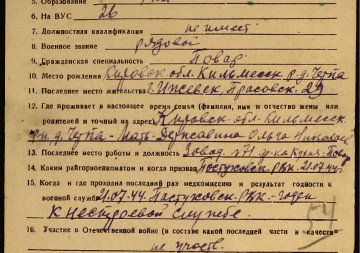 5. Образование
6. На ВУС 26
7. Должностная квалификация не имеет
8. Военное звание рядовой
9. Гражданская специальность Повар
10. Место рождения Кировск. обл. Кильмесск. р. д. Чупа
11. Последнее место жительства г. Ижевск, Прасовск. 29
12. Где проживали в настоящее время семья (фамилия, имя и отчество жены или
родителей и точный их адрес) Кировск. обл. Кильмесск
рн. д. Чупа - Мать - Державина Ольга
13. Последнее место работы и должность Завод №71
14. Каким райгорвоенкоматом и когда призван Пастуховск. РВК. 21.07.44 г.
15. Когда и где проходил последний раз медкомиссию и результат годности к
военной службе 21.07.44. Пастуховск. РВК - годен
к нестроевой службе.
16. Участие в Отечественной войне (в составе какой последней части и в качестве
не участв.